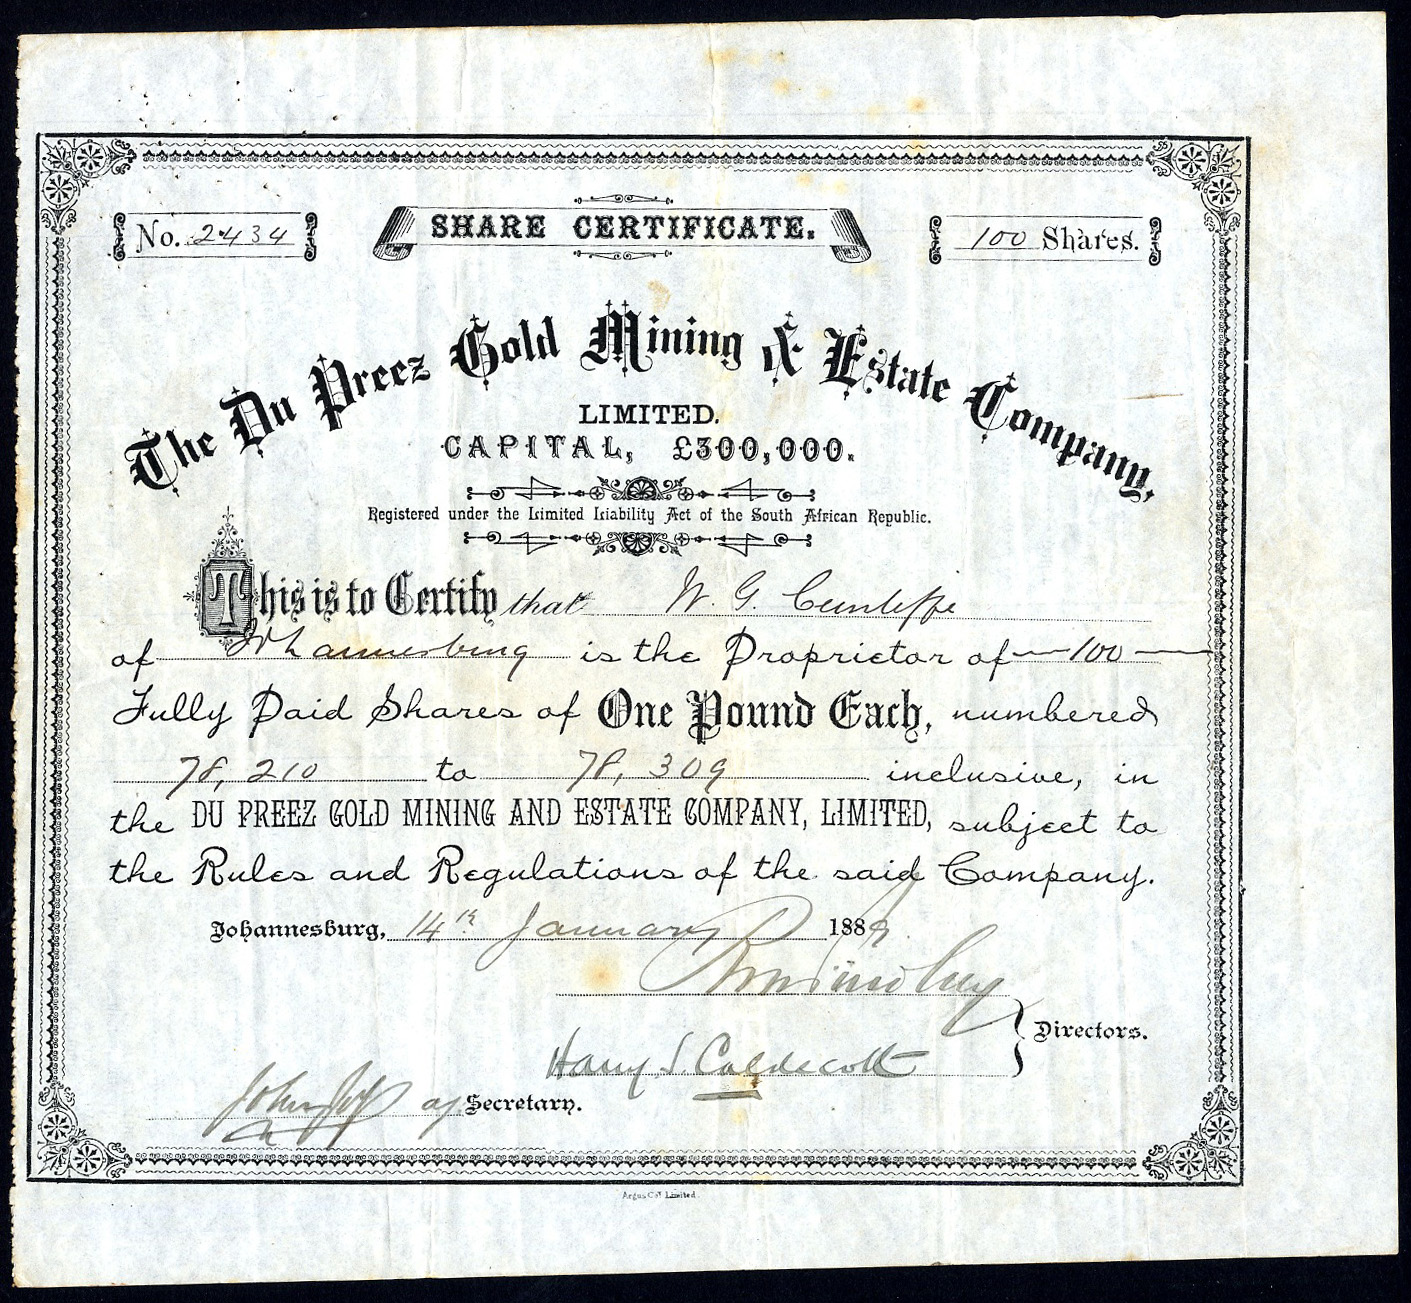 No. 2434
SHARE CERTIFICATE.
100 Shares.
The Du Preez Gold Mining & Estate Company,
LIMITED.
CAPITAL, £300,000.
Registered under the Limited Liability Act of the South African Republic.
This is to Certify that W. G. Cunliffe
of Johannesburg is the Proprietor of 100
Fully Paid Shares of One Pound Each, numbered
78,210 to 78,309 inclusive, in
the DU PREEZ GOLD MINING AND ESTATE COMPANY, LIMITED, subject to
the Rules and Regulations of the said Company.
Johannesburg, 14th January 1889
Directors.
Harry S. Caldecott
Secretary.
Argus Coy. Limited.